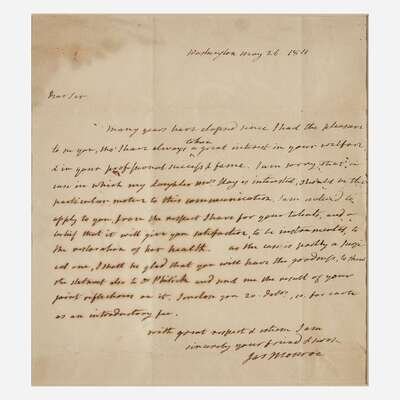 Washington May 26 1811
Dear Sir
Many years have elapsed since I had the pleasure
to see you, tho' I have always taken a great interest in your welfare
& in your professional success & fame. I am sorry that a
case in which my daughter Mrs Hay is interested, should be the
particular motive to this communication. I am induced to
apply to you from the respect I have for your talents, and a
belief that it will give you satisfaction, to be instrumental, to
the restoration of her health. as the case is partly a surgi
cal one, I shall be glad that you will have the goodness, to shew
the statement also to Dr Physick and send me the result of your
joint reflections on it. I enclose you 20. dolrs,
as an introductory fee.
with great respect & esteem I am
sincerely your friend &
Jas Monroe